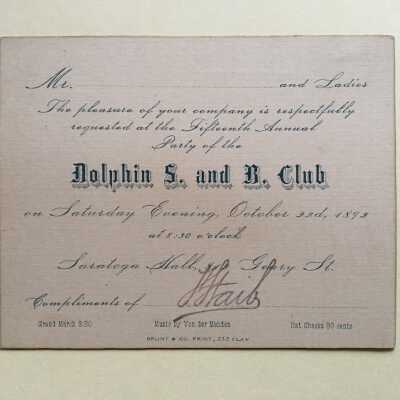 Mr. and Ladies
The pleasure of your company is respectfully
requested at the Fifteenth Annual
Party of the
Dolphin S. and B. Club
on Saturday Evening, October 22d, 1892
at 8:30 o'clock
Saratoga Hall, Geary St.
Compliments of
Grand March 9:30 Music by Von der Mehden Hat Checks 50 cents
BRUNT & CO. PRINT, 535 CLAY